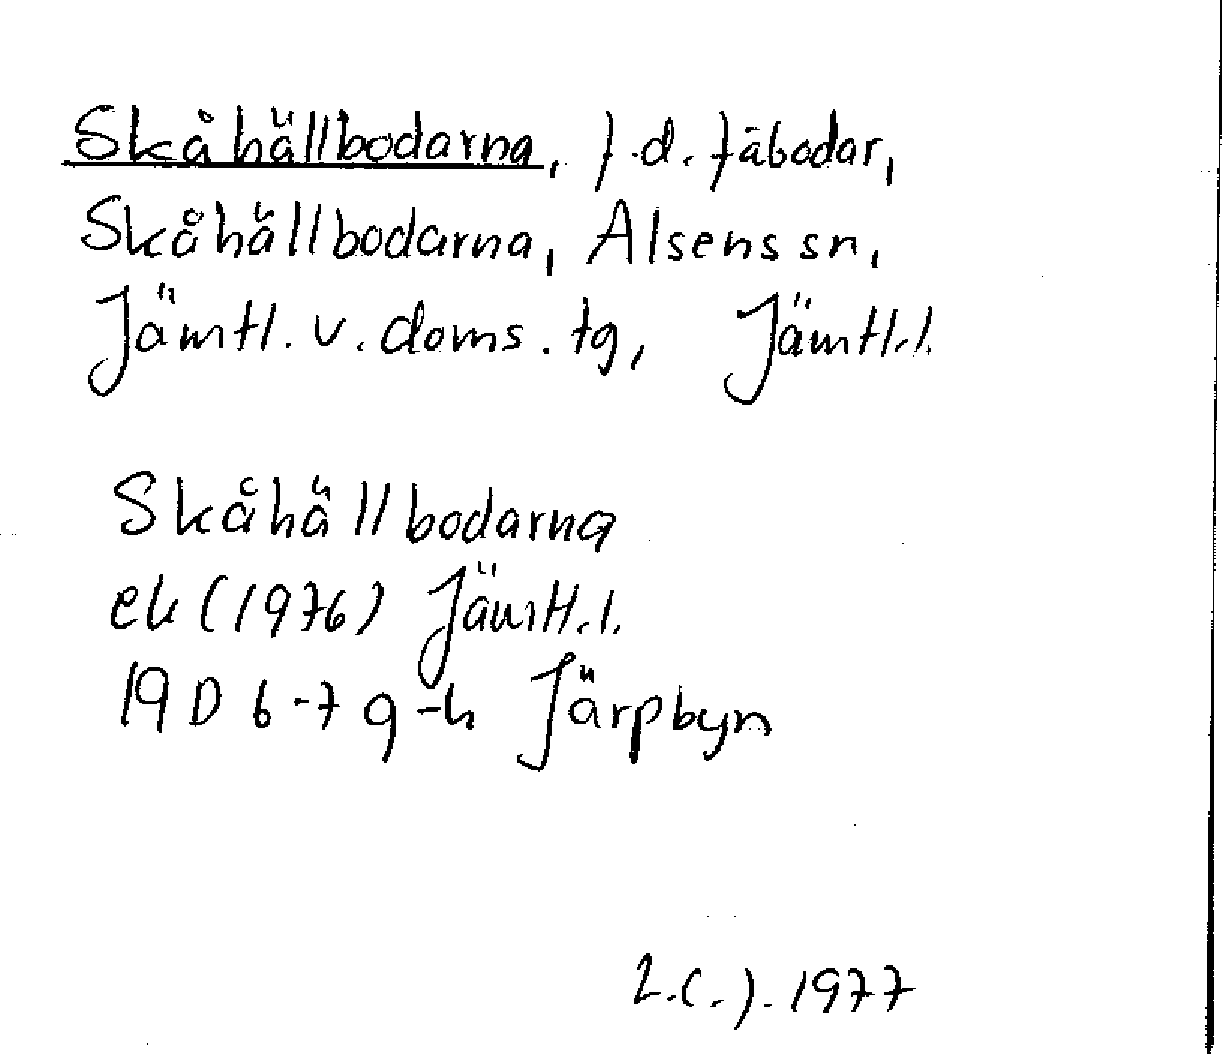 Skåhällbodarna, f.d. fäbodar,
Skåhällbodarna, Alsens sn,
Jämtl. v. doms. tg, Jämtl.l.
Skåhällbodarna
ek (1976) Jämtl.l.
19D 6-7 g-h Järpbyn
1977